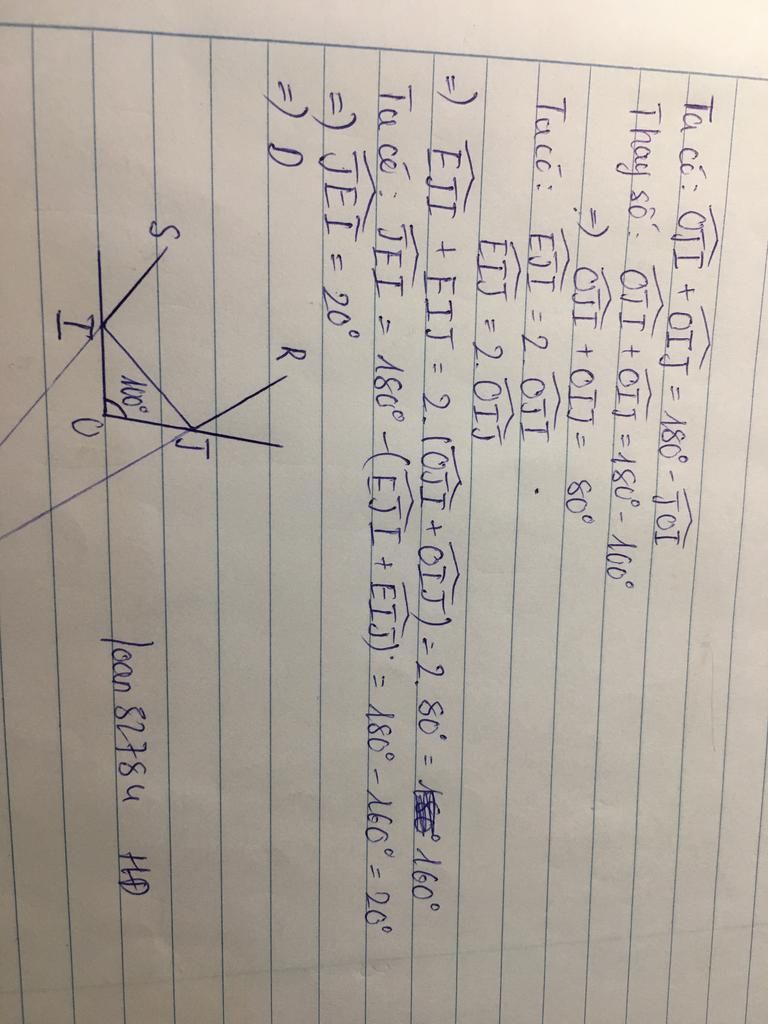 Ta có: OJI + OIJ = 180° - JOI
Thay số: OJI + OIJ = 180° - 100°
=) OJI + OIJ = 80°
Ta có: EJI = 2. OJI
EIJ = 2. OIJ
=) EJI + EIJ = 2. (OJI + OIJ) = 2. 80° = 160°
Ta có: JEI = 180° - (EJI + EIJ) = 180° - 160° = 20°
=) JEI = 20°
=) D
S
R
I
100°
O
J
loan82784 HD